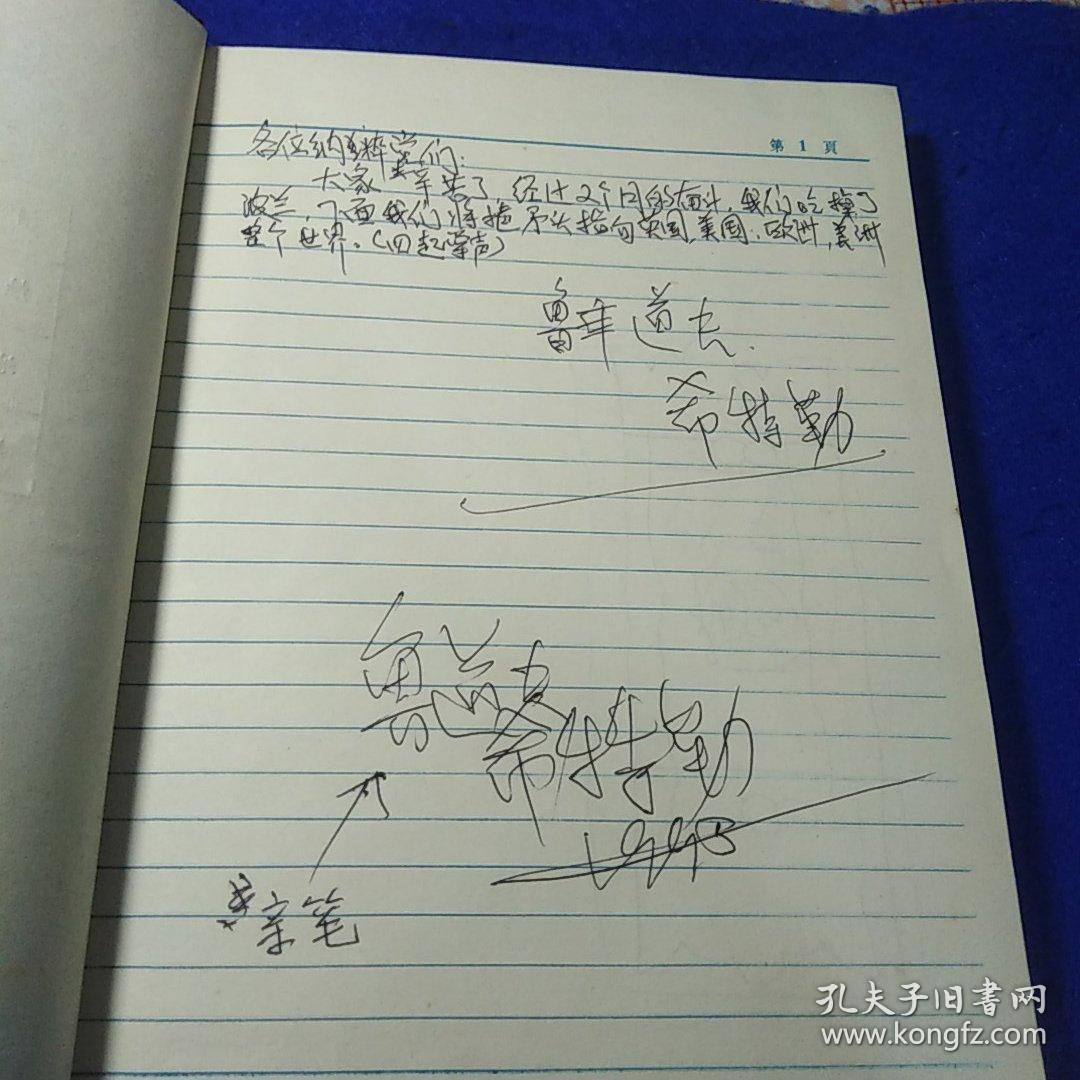 第 1 頁
各位纳粹党们：
大家辛苦了，经过2个月的奋斗，我们吃掉了
波兰，下面我们将把矛头指向英国，美国，欧洲，美洲
整个世界。（四起掌声）
鲁道夫
希特勒
鲁道夫
希特勒
亲笔
孔夫子旧書网
www.kongfz.com